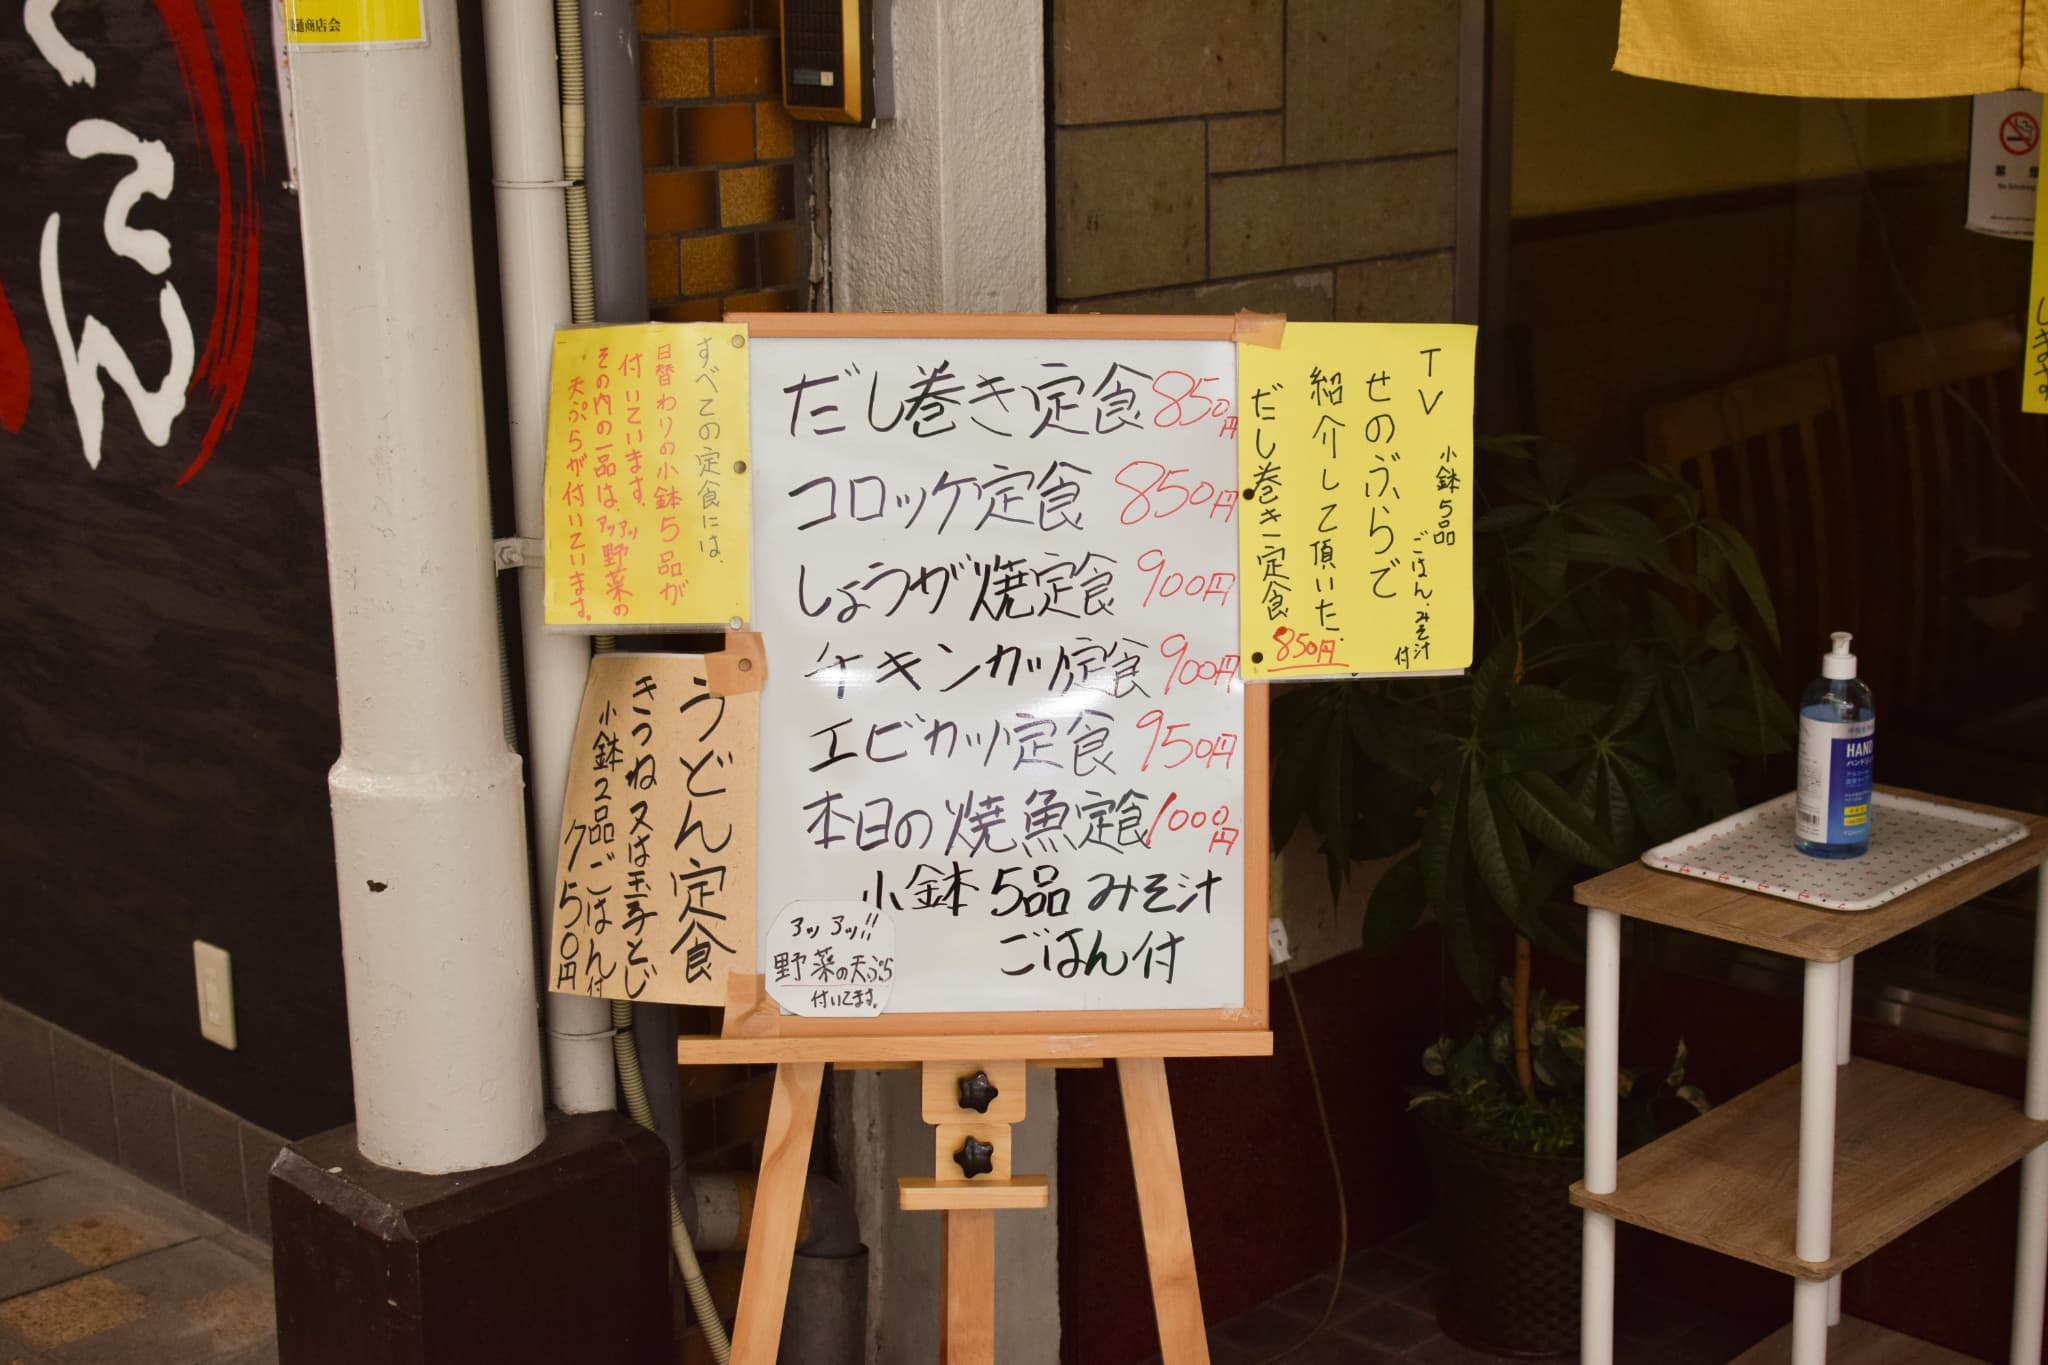 通商店会
すべての定食には、
日替わりの小鉢5品が
付いています。
その内の一品は、アツアツ野菜の
天ぷらが付いています。
うどん定食
きつね又は玉子とじ
小鉢2品ごはん付
750円
だし巻き定食850円
コロッケ定食850円
しょうが焼定食900円
チキンカツ定食900円
エビカツ定食950円
本日の焼魚定食1000円
小鉢5品みそ汁
ごはん付
アツアツ!!
野菜の天ぷら
付いてます。
TV
せのぶらで
紹介して頂いた、
だし巻き定食
850円
小鉢5品
ごはん、みそ汁
付
禁煙
No Smoking
HAND
ハンドジ
します。